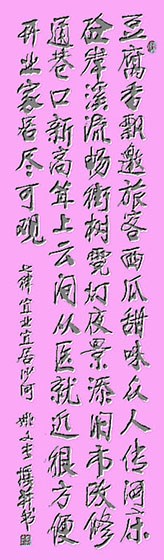 豆腐香飘邀旅客西瓜甜味众人传河床
砼岸溪流畅街树霓灯夜景添旧市改修
通巷口新高耸上云间从医就近很方便
开业家居尽可观
宜业宜居沙河 姚文奎撰